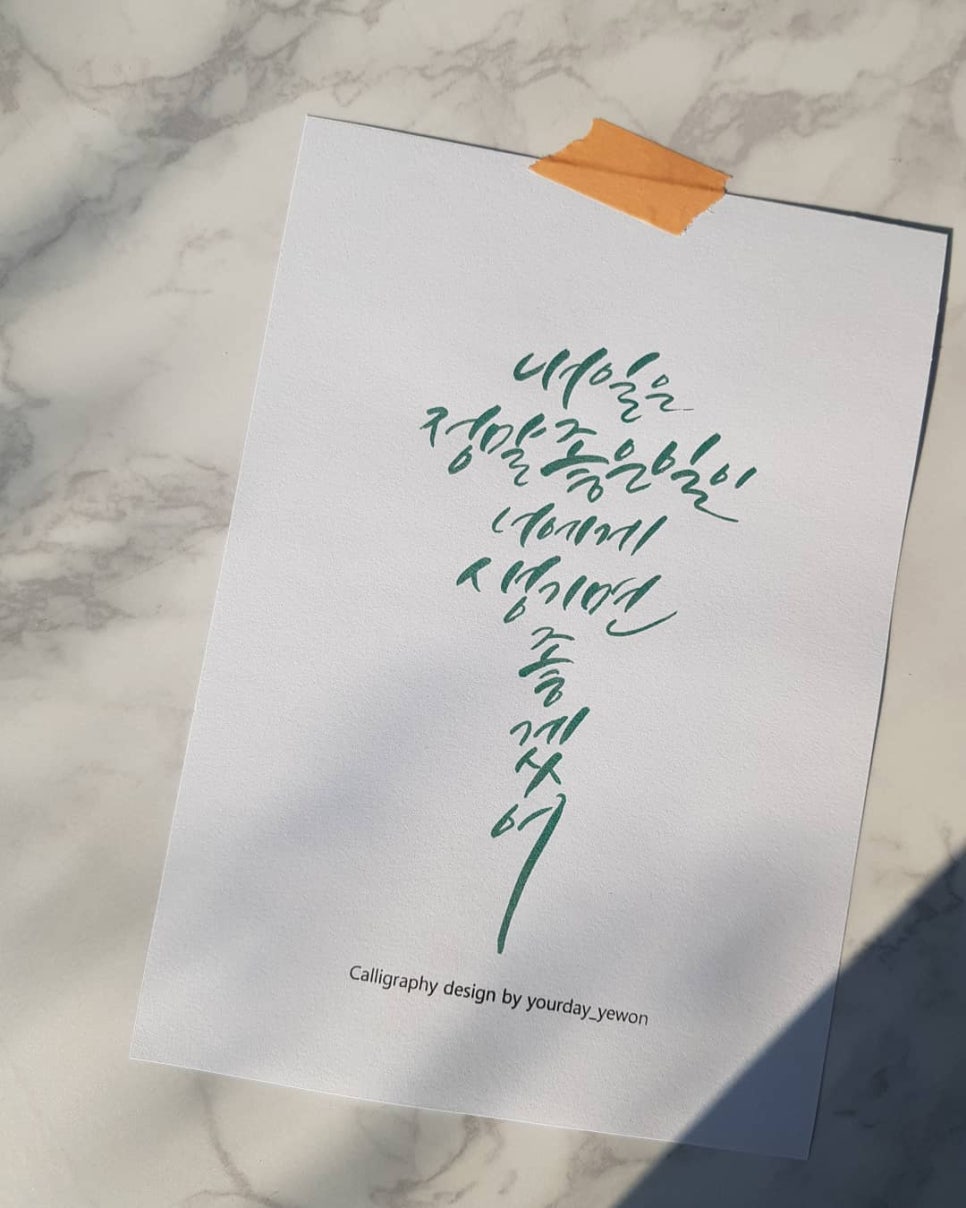 내일은
정말 좋은 일이
너에게
생기면
좋
겠
어
Calligraphy design by yourday_yewon